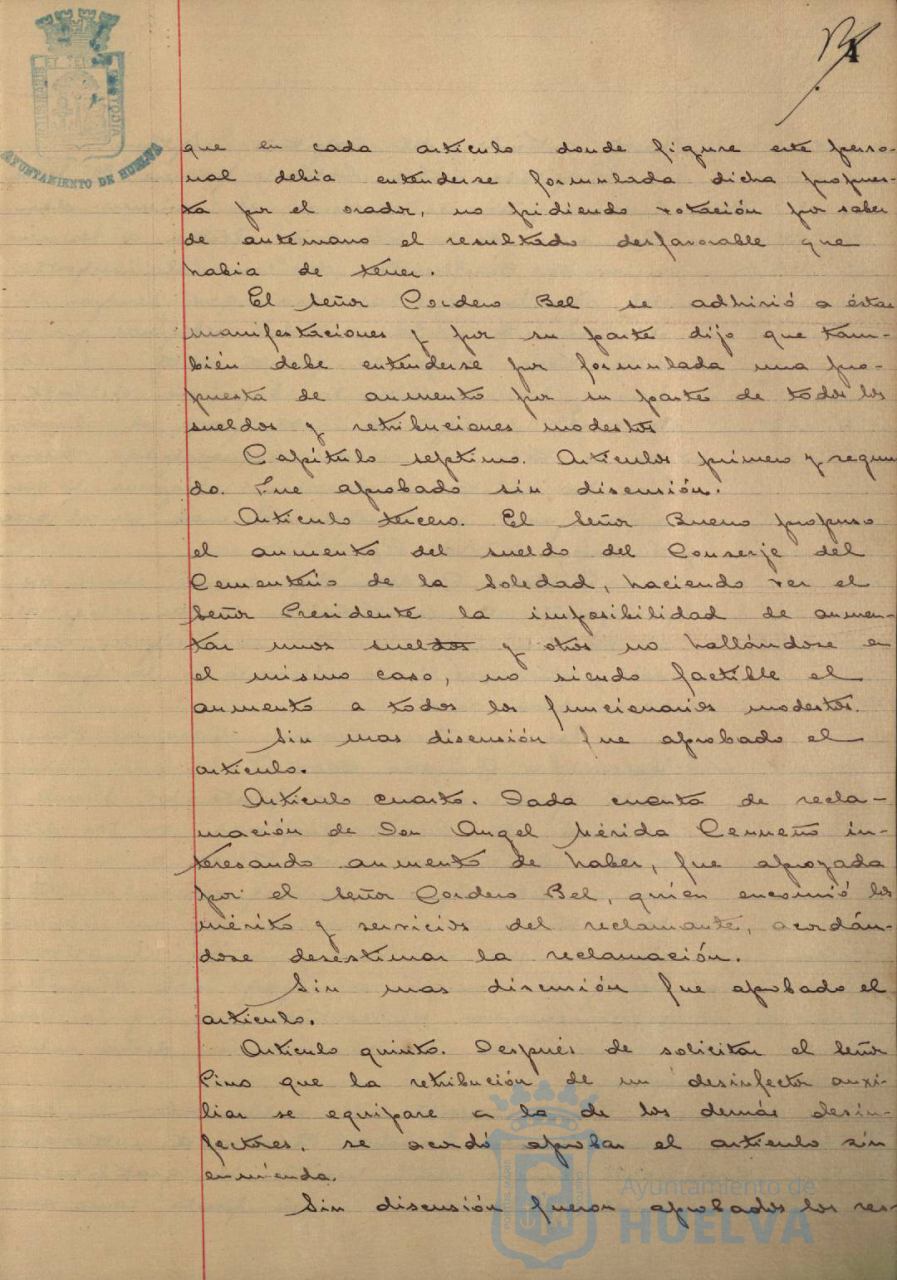 AYUNTAMIENTO DE HUELVA
que en cada artículo donde figure este perso-
nal debia entenderse formulada dicha propues-
ta por el orador, no pidiendo votación por saber
de antemano el resultado desfavorable que
habia de tener.
El Señor Cordero Bel se adhirió a éstas
manifestaciones y por su parte dijo que tam-
bién debe entenderse por formulada una pro-
puesta de aumento por su parte de todos los
sueldos y retribuciones modestos
Capítulo septimo. Artículos primero y segun
do. Fue aprobado sin discusión.
Artículo tercero. El Señor Bueno propuso
el aumento del sueldo del Conserje del
Cementerio de la Soledad, haciendo ver el
Señor Presidente la imposibilidad de aumen-
tar unos sueldos y otros no hallándose en
el mismo caso, no siendo factible el
aumento a todos los funcionarios modestos.
Sin mas discusión fue aprobado el
artículo.
Artículo cuarto. Dada cuenta de recla-
mación de Don Angel Mérida Cerreño in-
teresando aumento de haber, fue apoyada
por el Señor Cordero Bel, quién encomió los
mérito y servicios del reclamante, acordán-
dose desestimar la reclamación.
Sin mas discusión fue aprobado el
artículo.
Artículo quinto. Después de solicitar el Señor
Pino que la retribución de un desinfector auxi-
liar se equipare a la de los demás desin-
fectores, se acordó aprobar el artículo sin
enmienda.
Sin discusión fueron aprobados los res-
Ayuntamiento de
HUELVA